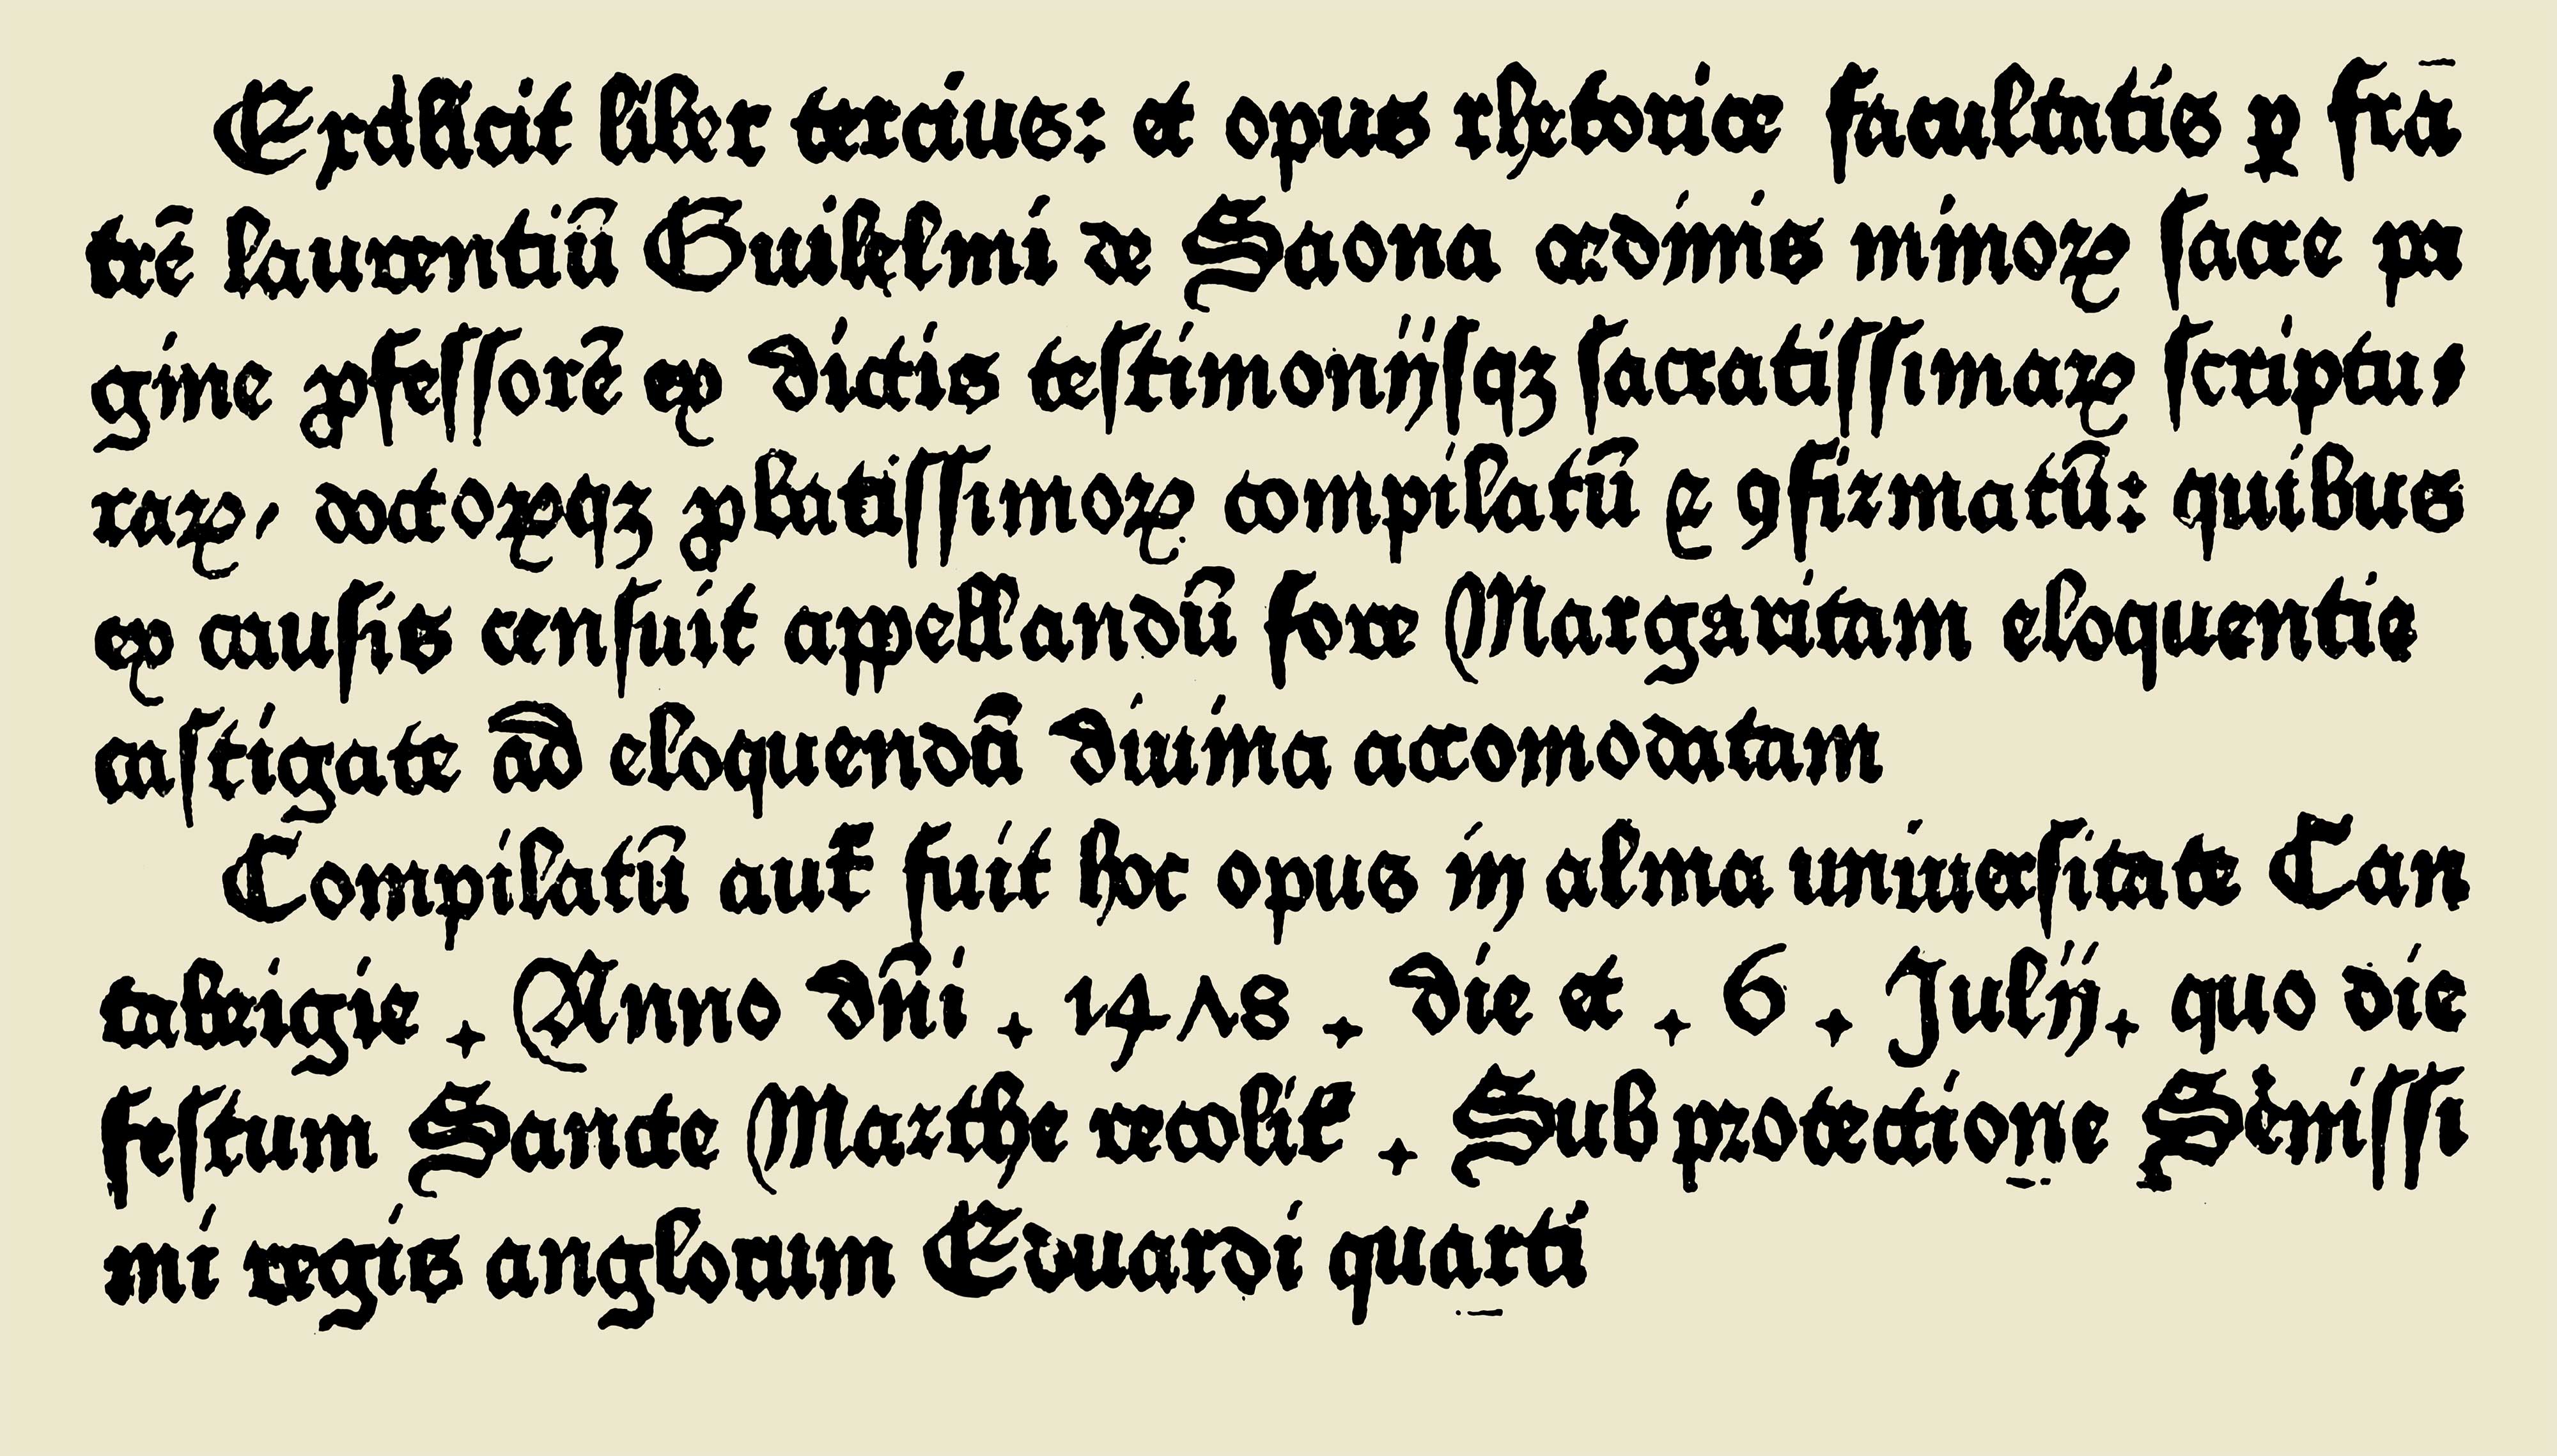 Exdlicit liber tercius: et opus rhetorice facultatis ꝑ fra̅
trē laurentiū Guilelmi de Saona ordinis minoꝝ sacre pa
gine ꝓfessorē ex dictis testimonijsqꝫ sacratissimaꝝ scriptu,
raꝝ, doctoꝝqꝫ ꝓbatissimoꝝ compilatū ⁊ ꝯfirmatū: quibus
ex causis censuit appellandū fore Margaritam eloquentie
castigate ad eloquendā diuina accomodatam
Compilatū aut̄ fuit hoc opus in alma uniuersitate Can
tabrigie . Anno dn̄i . 14ꓥ8 . die et . 6 . Julij . quo die
festum Sancte Marthe recolit̄ . Sub protectione Sēnissi
mi regis anglorum Eduardi quarti